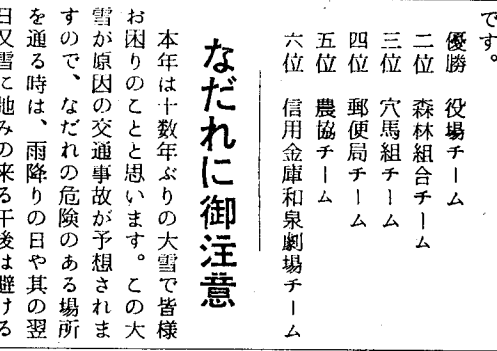 です。
優勝　役場チーム
二位　森林組合チーム
三位　穴馬組チーム
四位　郵便局チーム
五位　農協チーム
六位　信用金庫和泉劇場チーム
なだれに御注意
本年は十数年ぶりの大雪で皆様
お困りのことと思います。この大
雪が原因の交通事故が予想されま
すので、なだれの危険のある場所
を通る時は、雨降りの日や其の翌
日又雪に地みの来る午後は避ける